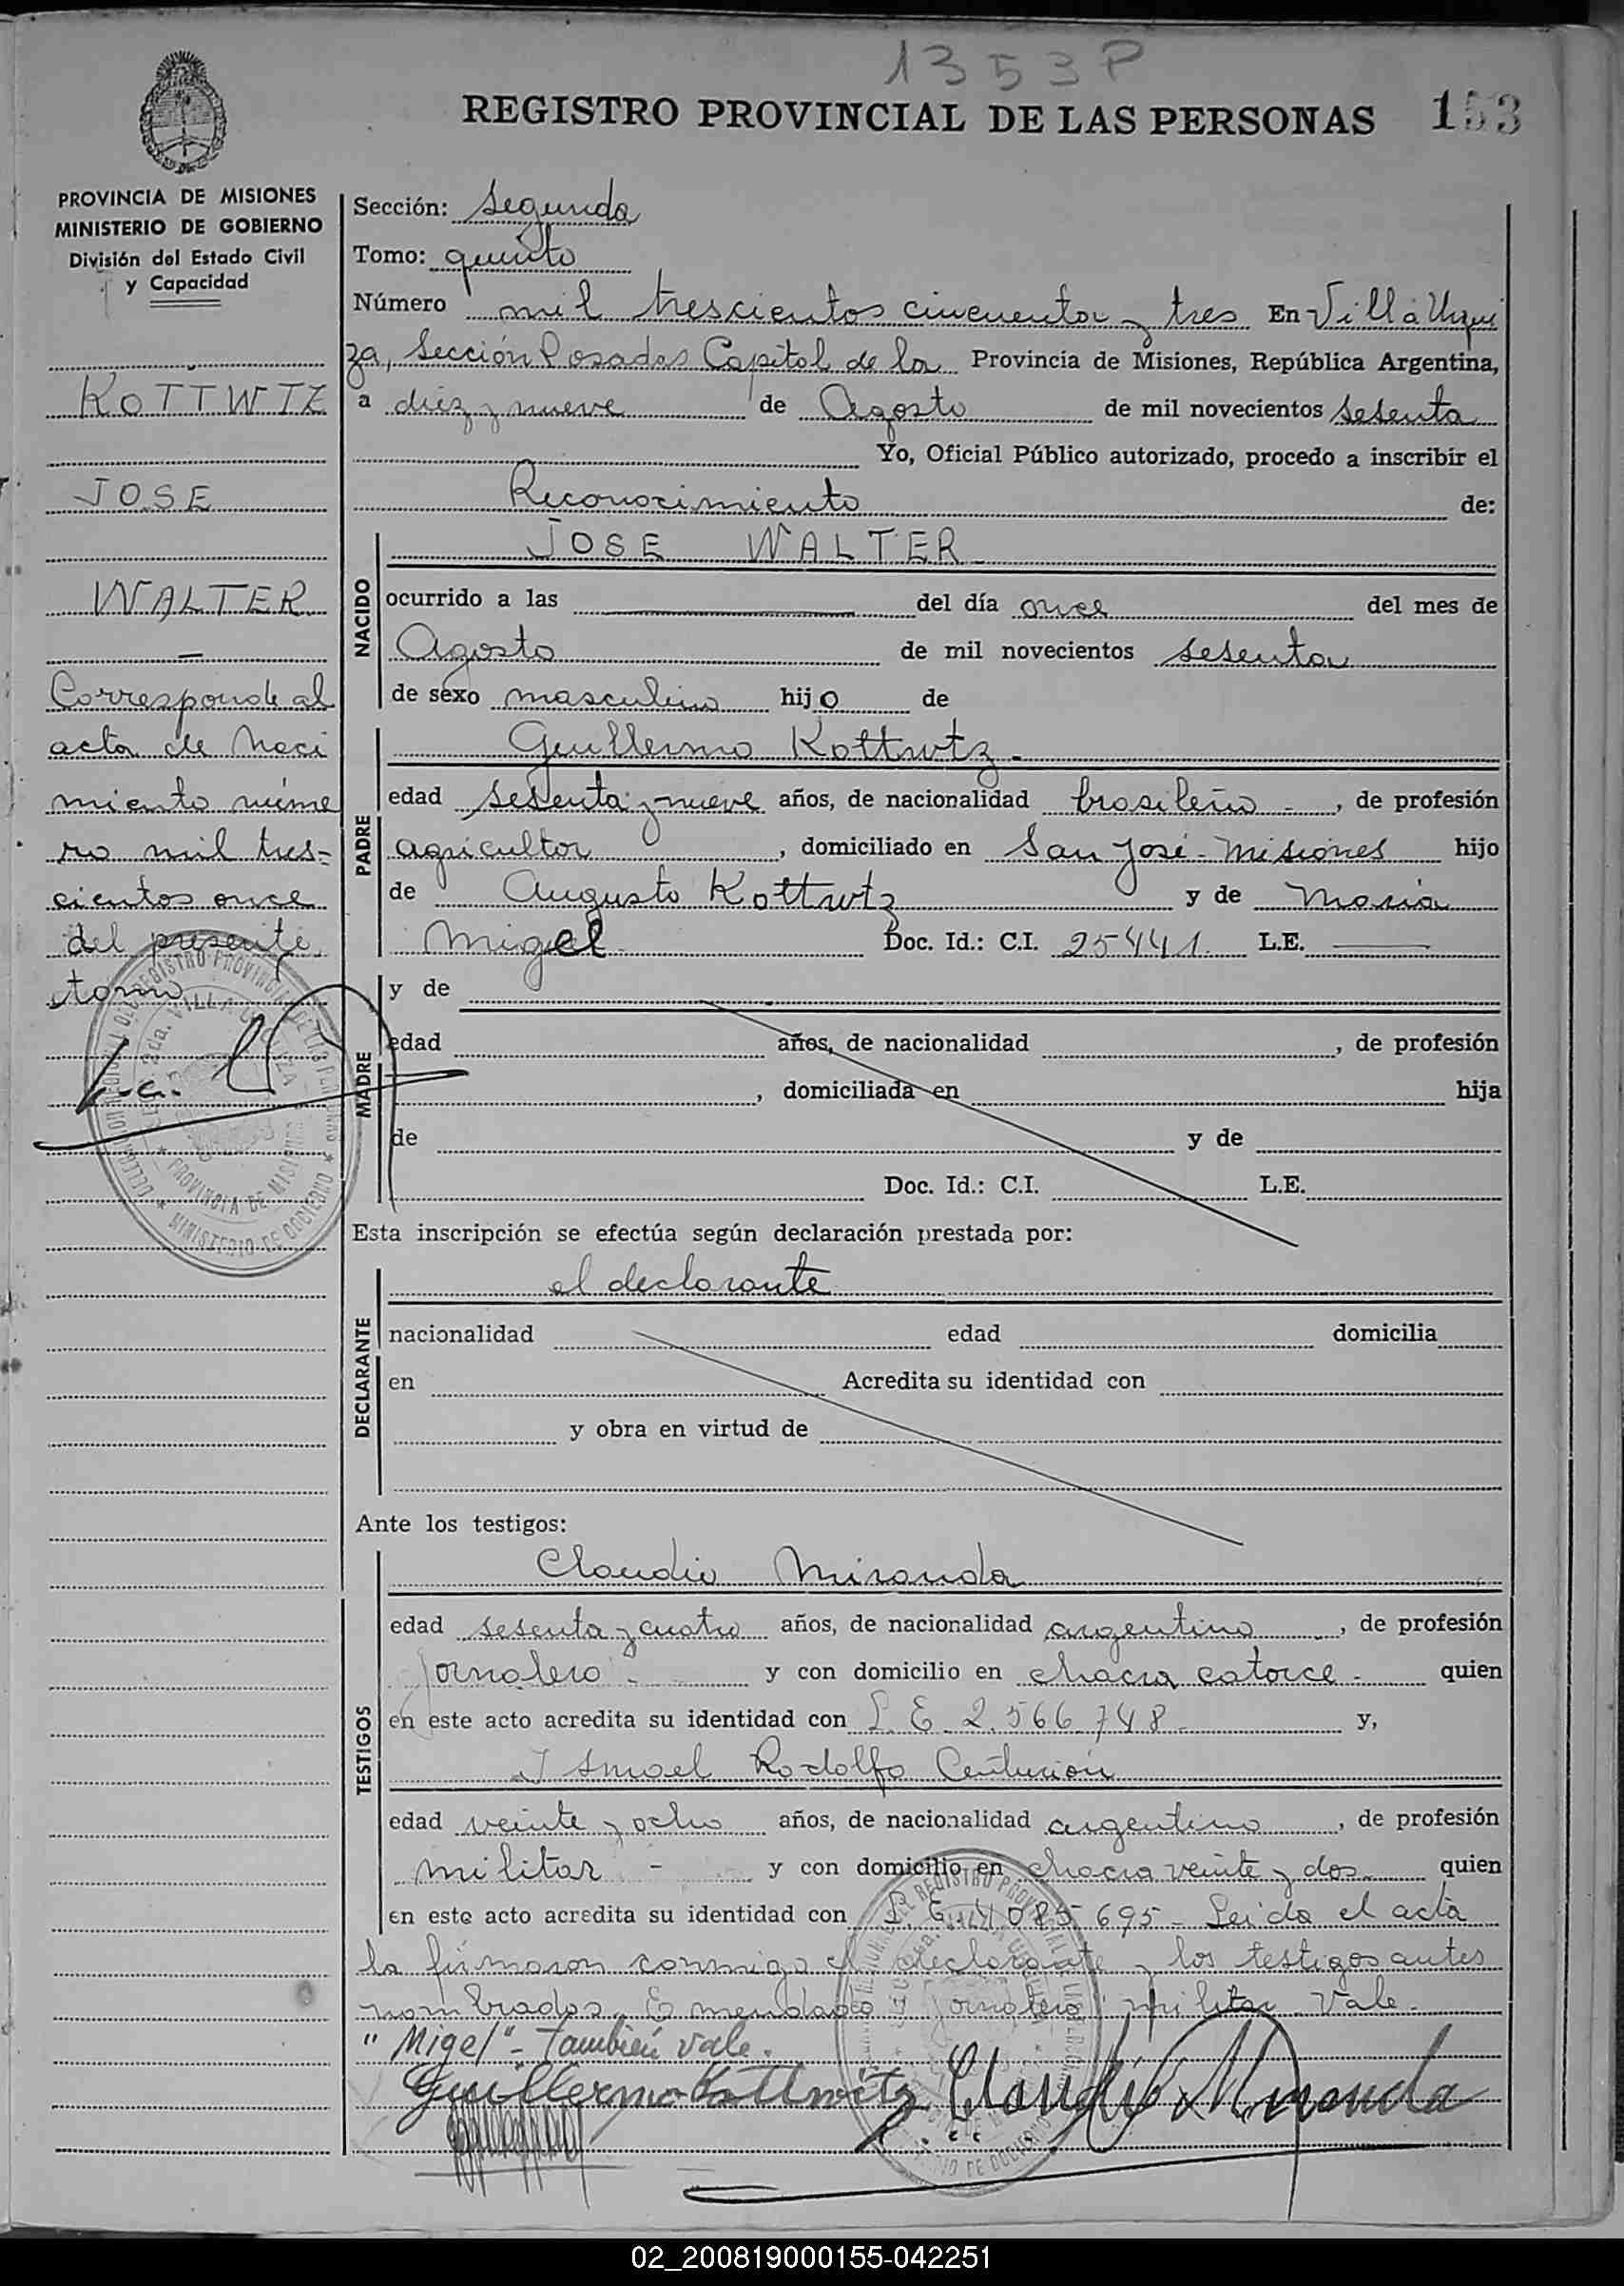 1353P
REGISTRO PROVINCIAL DE LAS PERSONAS 153
PROVINCIA DE MISIONES
MINISTERIO DE GOBIERNO
División del Estado Civil
y Capacidad
KOTTWTZ
JOSE
WALTER
Corresponde al
acta de Naci
miento núme
ro mil tres-
cientos once
del presente
tomo
Sección: Segunda
Tomo: quinto
Número mil trescientos cincuenta y tres En Villa Urqui
za, Sección Posadas Capital de la Provincia de Misiones, República Argentina,
a diez y nueve de Agosto de mil novecientos sesenta
Yo, Oficial Público autorizado, procedo a inscribir el
Reconocimiento de:
NACIDO
JOSE WALTER
ocurrido a las del día once del mes de
Agosto de mil novecientos sesenta
de sexo masculino hijo de
PADRE
Guillermo Kottwtz.
edad sesenta y nueve años, de nacionalidad brasileño -, de profesión
agricultor, domiciliado en San José - Misiones hijo
de Augusto Kottwtz y de María
Migel Doc. Id.: C.I. 25441. L.E.
MADRE
y de
edad años, de nacionalidad , de profesión
, domiciliada en hija
de y de
Doc. Id.: C.I. L.E.
Esta inscripción se efectúa según declaración prestada por:
DECLARANTE
el declarante
nacionalidad edad domicilia
en Acredita su identidad con
y obra en virtud de
Ante los testigos:
TESTIGOS
Claudio Miranda
edad sesenta y cuatro años, de nacionalidad argentino, de profesión
jornalero - y con domicilio en chacra catorce - quien
en este acto acredita su identidad con L.E. 2.566.748 - y,
Ismael Rodolfo Centurión
edad veinte y ocho años, de nacionalidad argentino, de profesión
militar - y con domicilio en chacra veinte y dos quien
en este acto acredita su identidad con L.E. 4085695 - Leida el acta
la firmaron conmigo el declarante y los testigos antes
nombrados. Enmendado "jornalero" militar - Vale -
"Migel" - también vale.
Guillermo Kottwitz Claudio Miranda
02_200819000155-042251